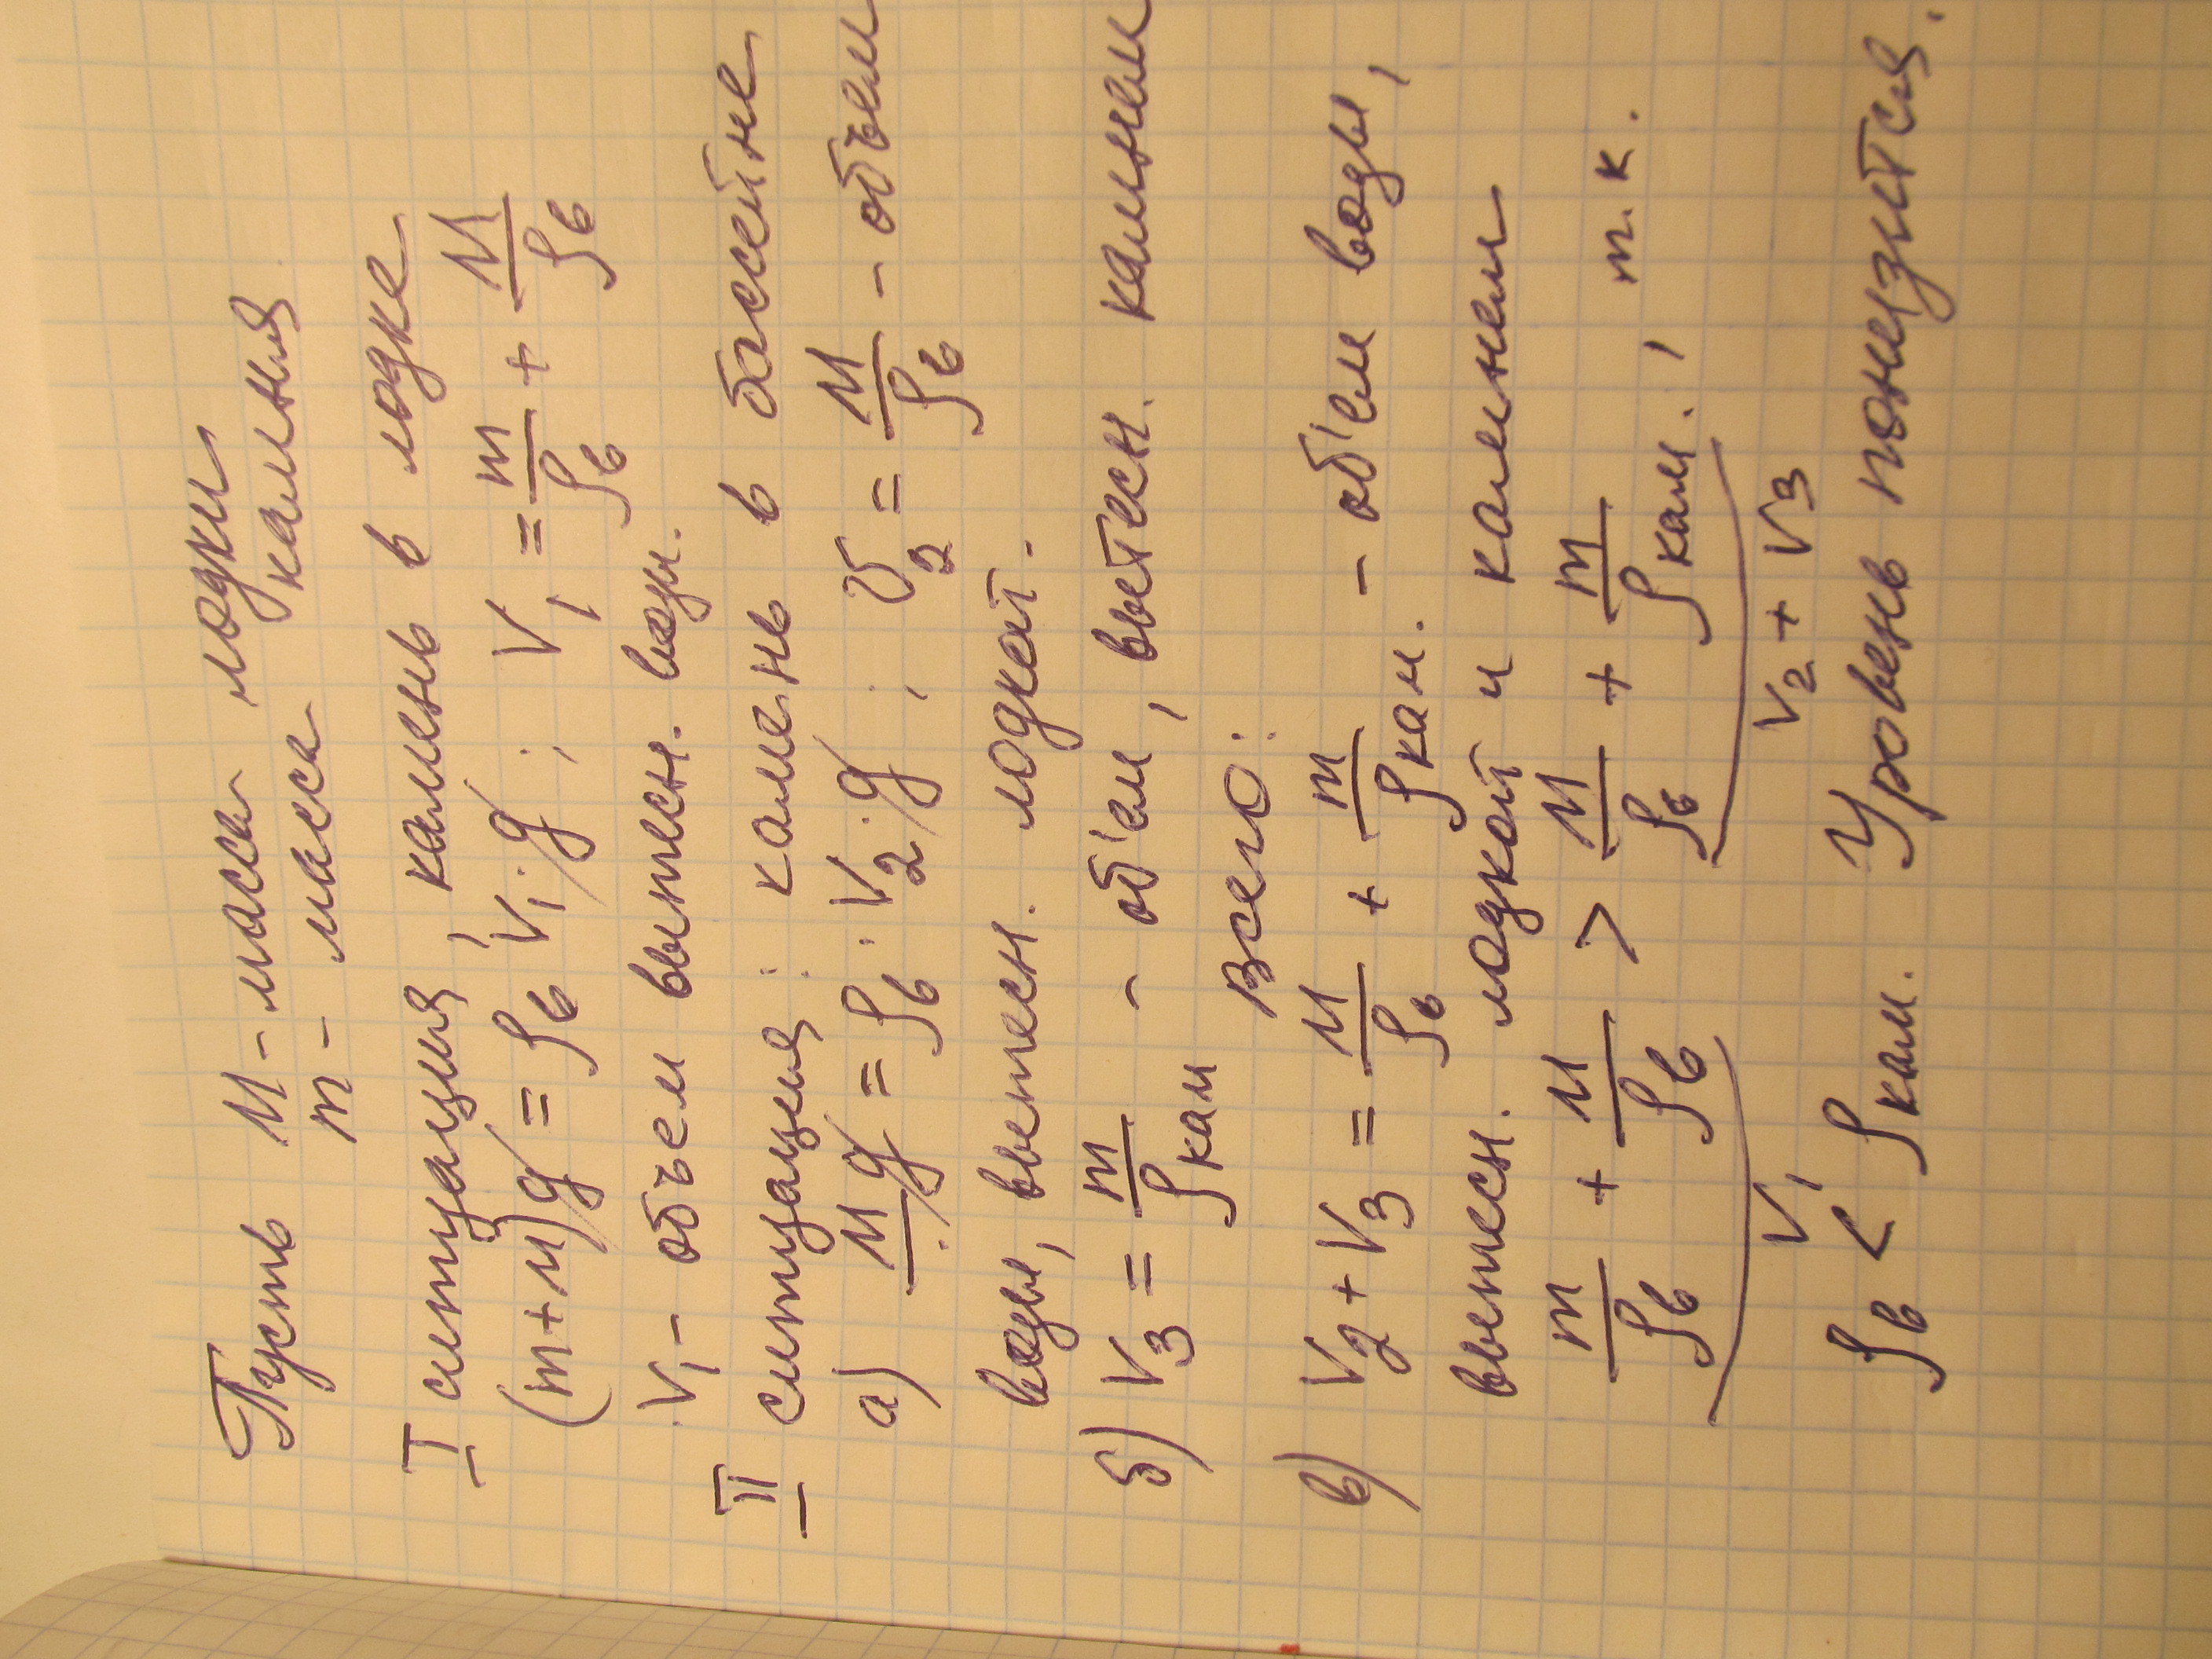 Пусть М - масса лодки
m - масса камня
I ситуация, камень в лодке
(m+М)g = ρв V₁·g ; V₁ = m/ρв + М/ρв
V₁ - объем вытесн. воды.
II ситуация: камень в бассейне
а) Мg = ρв·V₂·g ; V₂ = М/ρв - объем
воды, вытесн. лодкой.
б) V₃ = m/ρкам - об'ем, вытесн. камнем
Всего:
в) V₂+V₃ = М/ρв + m/ρкам. - об'ем воды,
вытесн. лодкой и камнем
m/ρв + М/ρв > М/ρв + m/ρкам. , т.к.
V₁ V₂ + V₃
ρв < ρкам. Уровень понизится.